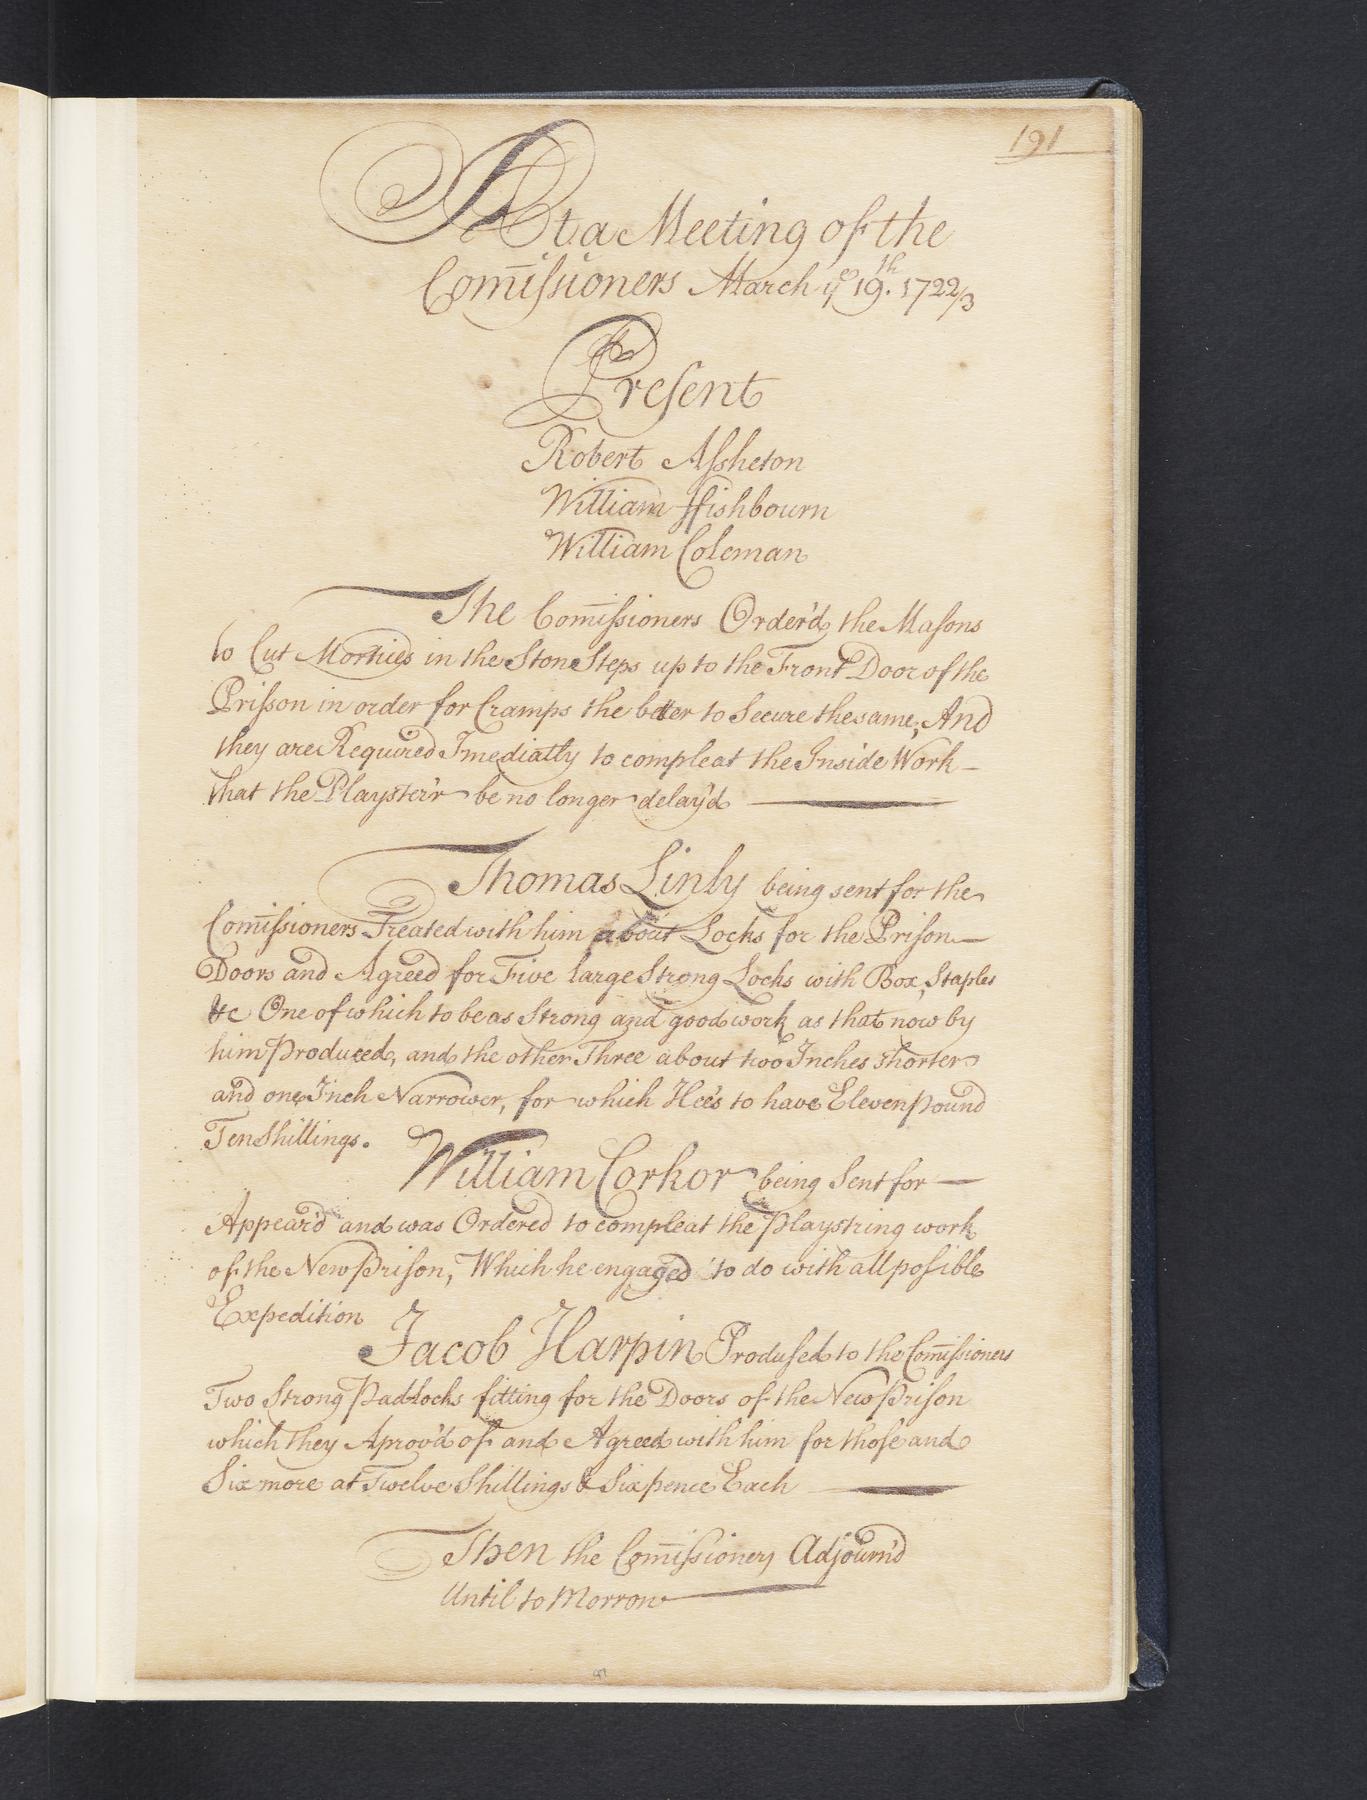 191
At a Meeting of the
Com̅iſsioners March yͤ 19th. 1722/3
Preſent
Robert Aſsheton
William ffishbourn
William Coleman
The Com̅iſsioners Order'd the Maſons
to Cut Morties in the Stone Steps up to the Front Door of the
Priſson in order for Cramps the better to Secure the same, And
they are Required Imediatly to compleat the Inside Work
that the Playster'r be no longer delay'd
Thomas Linly being sent for the
Com̅iſsioners Treated with him about Locks for the Priſon
Doors and Agreed for Five large Strong Locks with Box, Staples
&c One of which to be as Strong and good work as that now by
him Produced, and the other Three about two Inches shorter
and one Inch Narrower, for which Hee's to have Eleven pound
Ten Shillings.
William Corkor being Sent for
Appear'd and was Ordered to compleat the Playstring work
of the New Priſon, Which he engaged to do with all poſible
Expedition
Jacob Harpin Produſed to the Com̅iſsioners
Two Strong Padlocks fitting for the Doors of the New Priſon
which They Aprov'd of and Agreed with him for thoſe and
Six more at Twelve Shillings & Six pence Each
Then the Com̅iſsioners Adjourn'd
Until to Morrow